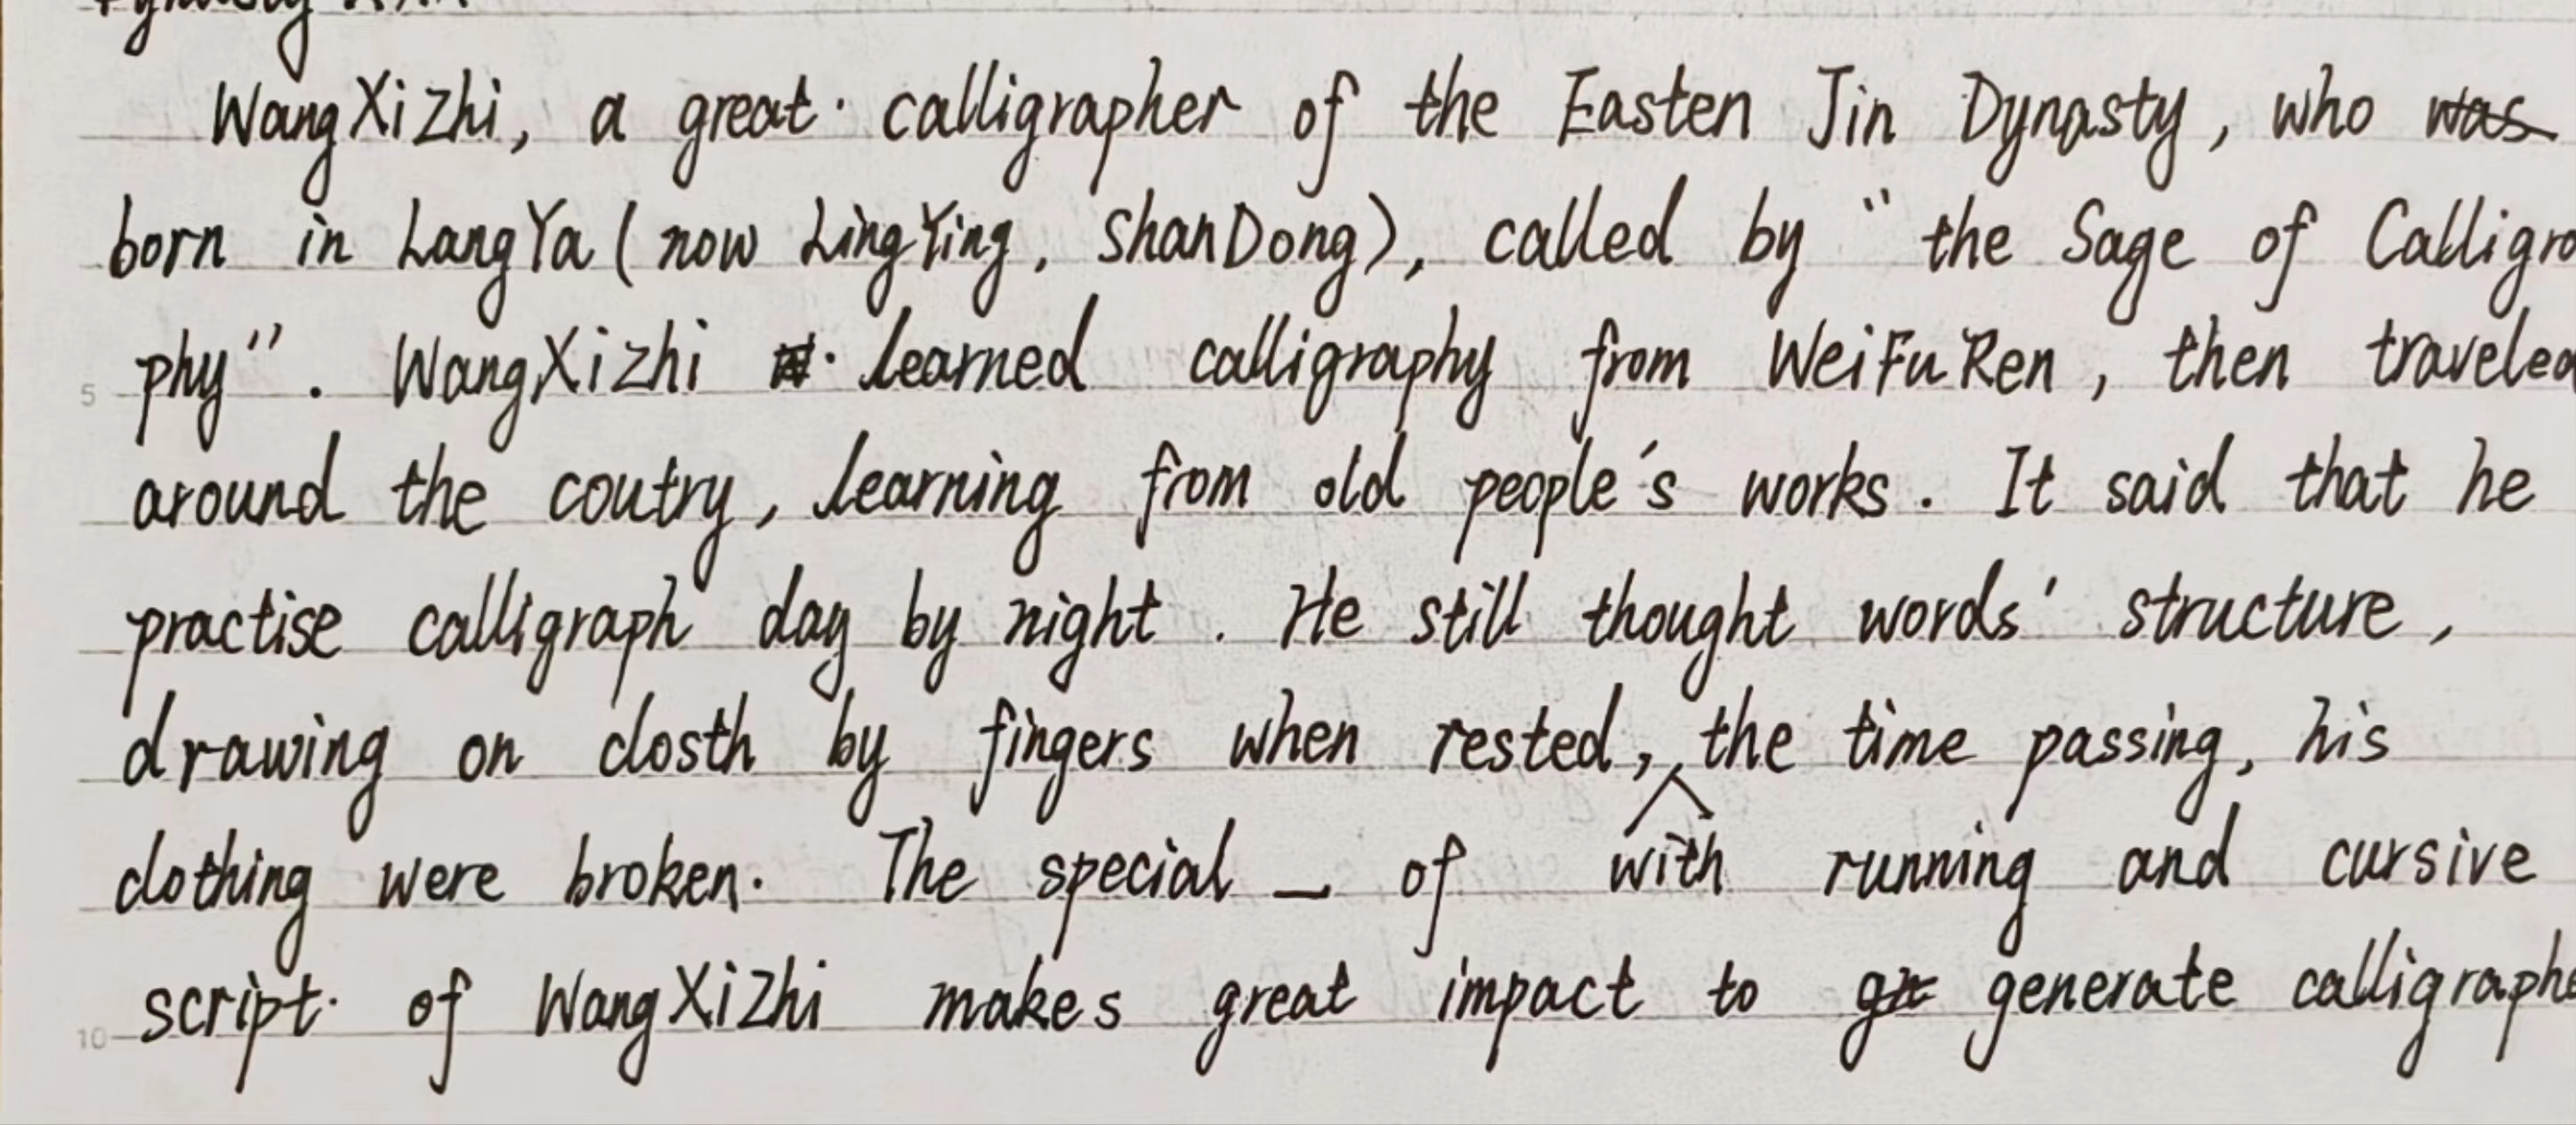 WangXiZhi, a great calligrapher of the Easten Jin Dynasty, who was
born in LangYa (now LingYing, ShanDong), called by "the Sage of Calligra
phy". WangXiZhi learned calligraphy from WeiFuRen, then traveled
around the coutry, learning from old people's works. It said that he
practise calligraph day by night. He still thought words' structure,
drawing on closth by fingers when rested, the time passing, his
with
clothing were broken. The special _ of running and cursive
script of WangXiZhi makes great impact to generate calligraphe
5
10